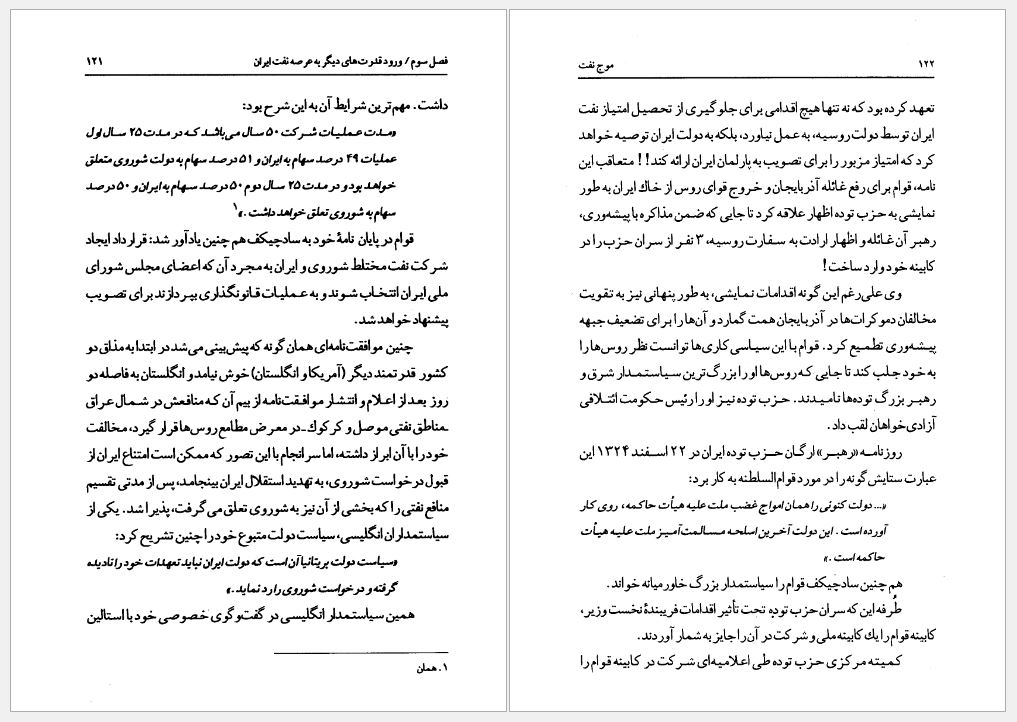 فصل سوم / ورود قدرت‌های دیگر به عرصه نفت ایران ۱۲۱
داشت. مهم‌ترین شرایط آن به این شرح بود:
«مدت عملیات شرکت ۵۰ سال می‌باشد که در مدت ۲۵ سال اول
عملیات ۴۹ درصد سهام به ایران و ۵۱ درصد سهام به دولت شوروی متعلق
خواهد بود و در مدت ۲۵ سال دوم ۵۰ درصد سهام به ایران و ۵۰ درصد
سهام به شوروی تعلق خواهد داشت.»۱
قوام در پایان نامهٔ خود به سادچیکف هم چنین یادآور شد: قرارداد ایجاد
شرکت نفت مختلط شوروی و ایران به مجرد آن که اعضای مجلس شورای
ملی ایران انتخاب شوند و به عملیات قانونگذاری بپردازند برای تصویب
پیشنهاد خواهد شد.
چنین موافقت‌نامه‌ای همان گونه که پیش‌بینی می‌شد در ابتدا به مذاق دو
کشور قدرتمند دیگر (آمریکا و انگلستان) خوش نیامد و انگلستان به فاصله دو
روز بعد از اعلام و انتشار موافقت‌نامه از بیم آن که منافعش در شمال عراق
ـ‌مناطق نفتی موصل و کرکوک‌ـ در معرض مطامع روس‌ها قرار گیرد، مخالفت
خود را با آن ابراز داشته، اما سرانجام با این تصور که ممکن است امتناع ایران از
قبول درخواست شوروی، به تهدید استقلال ایران بینجامد، پس از مدتی تقسیم
منافع نفتی را که بخشی از آن نیز به شوروی تعلق می‌گرفت، پذیرا شد. یکی از
سیاستمداران انگلیسی، سیاست دولت متبوع خود را چنین تشریح کرد:
«سیاست دولت بریتانیا آن است که دولت ایران نباید تعهدات خود را نادیده
گرفته و درخواست شوروی را رد نماید.»
همین سیاستمدار انگلیسی در گفت‌وگوی خصوصی خود با استالین
۱. همان
۱۲۲ موج نفت
تعهد کرده بود که نه تنها هیچ اقدامی برای جلوگیری از تحصیل امتیاز نفت
ایران توسط دولت روسیه، به عمل نیاورد، بلکه به دولت ایران توصیه خواهد
کرد که امتیاز مزبور را برای تصویب به پارلمان ایران ارائه کند!! متعاقب این
نامه، قوام برای رفع غائله آذربایجان و خروج قوای روس از خاک ایران به طور
نمایشی به حزب توده اظهار علاقه کرد تا جایی که ضمن مذاکره با پیشه‌وری،
رهبر آن غائله و اظهار ارادت به سفارت روسیه، ۳ نفر از سران حزب را در
کابینه خود وارد ساخت!
وی علی‌رغم این گونه اقدامات نمایشی، به طور پنهانی نیز به تقویت
مخالفان دموکرات‌ها در آذربایجان همت گمارد و آن‌ها را برای تضعیف جبهه
پیشه‌وری تطمیع کرد. قوام با این سیاسی‌کاری‌ها توانست نظر روس‌ها را
به خود جلب کند تا جایی که روس‌ها او را بزرگ‌ترین سیاستمدار شرق و
رهبر بزرگ توده‌ها نامیدند. حزب توده نیز او را رئیس حکومت ائتلافی
آزادی‌خواهان لقب داد.
روزنامه «رهبر» ارگان حزب توده ایران در ۲۲ اسفند ۱۳۲۴ این
عبارت ستایش‌گونه را در مورد قوام‌السلطنه به کار برد:
«... دولت کنونی را همان امواج غضب ملت علیه هیأت حاکمه، روی کار
آورده است. این دولت آخرین اسلحه مسالمت‌آمیز ملت علیه هیأت
حاکمه است.»
هم چنین سادچیکف قوام را سیاستمدار بزرگ خاورمیانه خواند.
طُرفه این که سران حزب توده تحت تأثیر اقدامات فریبندهٔ نخست وزیر،
کابینه قوام را یك کابینه ملی و شرکت در آن را جایز به شمار آوردند.
کمیته مرکزی حزب توده طی اعلامیه‌ای شرکت در کابینه قوام را